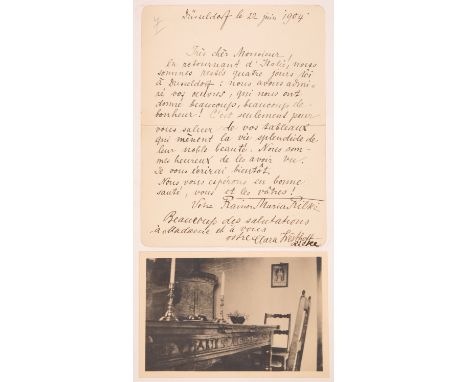 Düsseldorf le 22 juin 1904
Très cher Monsieur,
en retournant d'Italie, nous
sommes restés quatre jours ici
à Düsseldorf: nous avons admi-
ré vos œuvres, qui nous ont
donné beaucoup, beaucoup de
bonheur! C'est seulement pour
vous saluer de vos tableaux
qui mènent la vie splendide de
leur noble beauté. Nous som-
mes heureux de les avoir vu.
Je vous écrirai bientôt.
Nous vous espérons en bonne
santé, vous et les vôtres!
Votre Rainer Maria Rilke
Beaucoup des salutations
à Madame et à vous
votre Clara Westhoff
Rilke